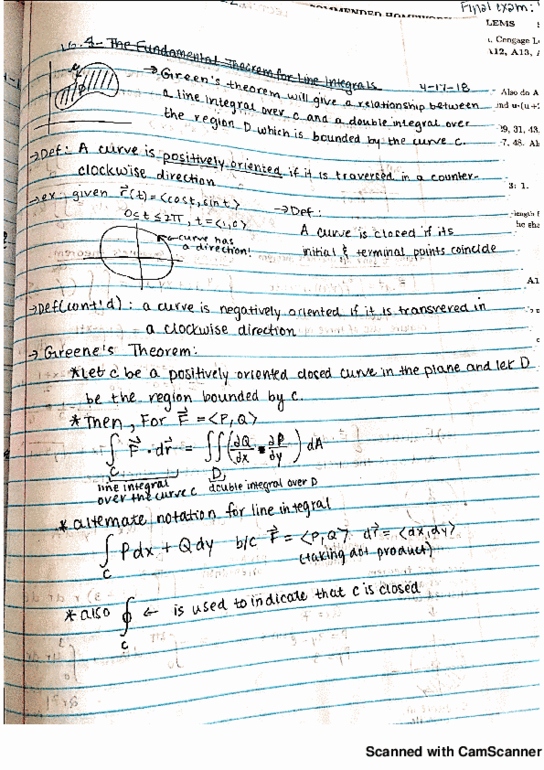 Final exam:
LEMS
Cengage L
A12, A13,
16.4 - The Fundamental Theorem for Line Integrals
4-17-18
Also do A
→ Green's theorem will give a relationship between
nd u-(u+
a line integral over c and a double integral over
29, 31, 43.
the region D which is bounded by the curve c.
7. 48.
→ Def: A curve is positively oriented if it is traversed in a counter-
clockwise direction
3: 1.
→ ex: given r(t) = <cost, sint>
0≤t≤2π, t=<1,0>
→ Def:
length
A curve is closed if its
he sha
curve has
a direction!
initial & terminal points coincide
A1
→ Def(cont'd): a curve is negatively oriented if it is transvered in
a clockwise direction
→ Greene's Theorem:
* Let c be a positively oriented closed curve in the plane and let D
be the region bounded by c.
* Then, For F = <P, Q>
∫ F · dr = ∬ (∂Q/∂x - ∂P/∂y) dA
C D
line integral
over the curve c double integral over D
* alternate notation for line integral
∫ Pdx + Qdy b/c F = <P, Q> dr = <dx, dy>
C
(taking dot product)
* also ∮ ← is used to indicate that c is closed
C
Scanned with CamScanner